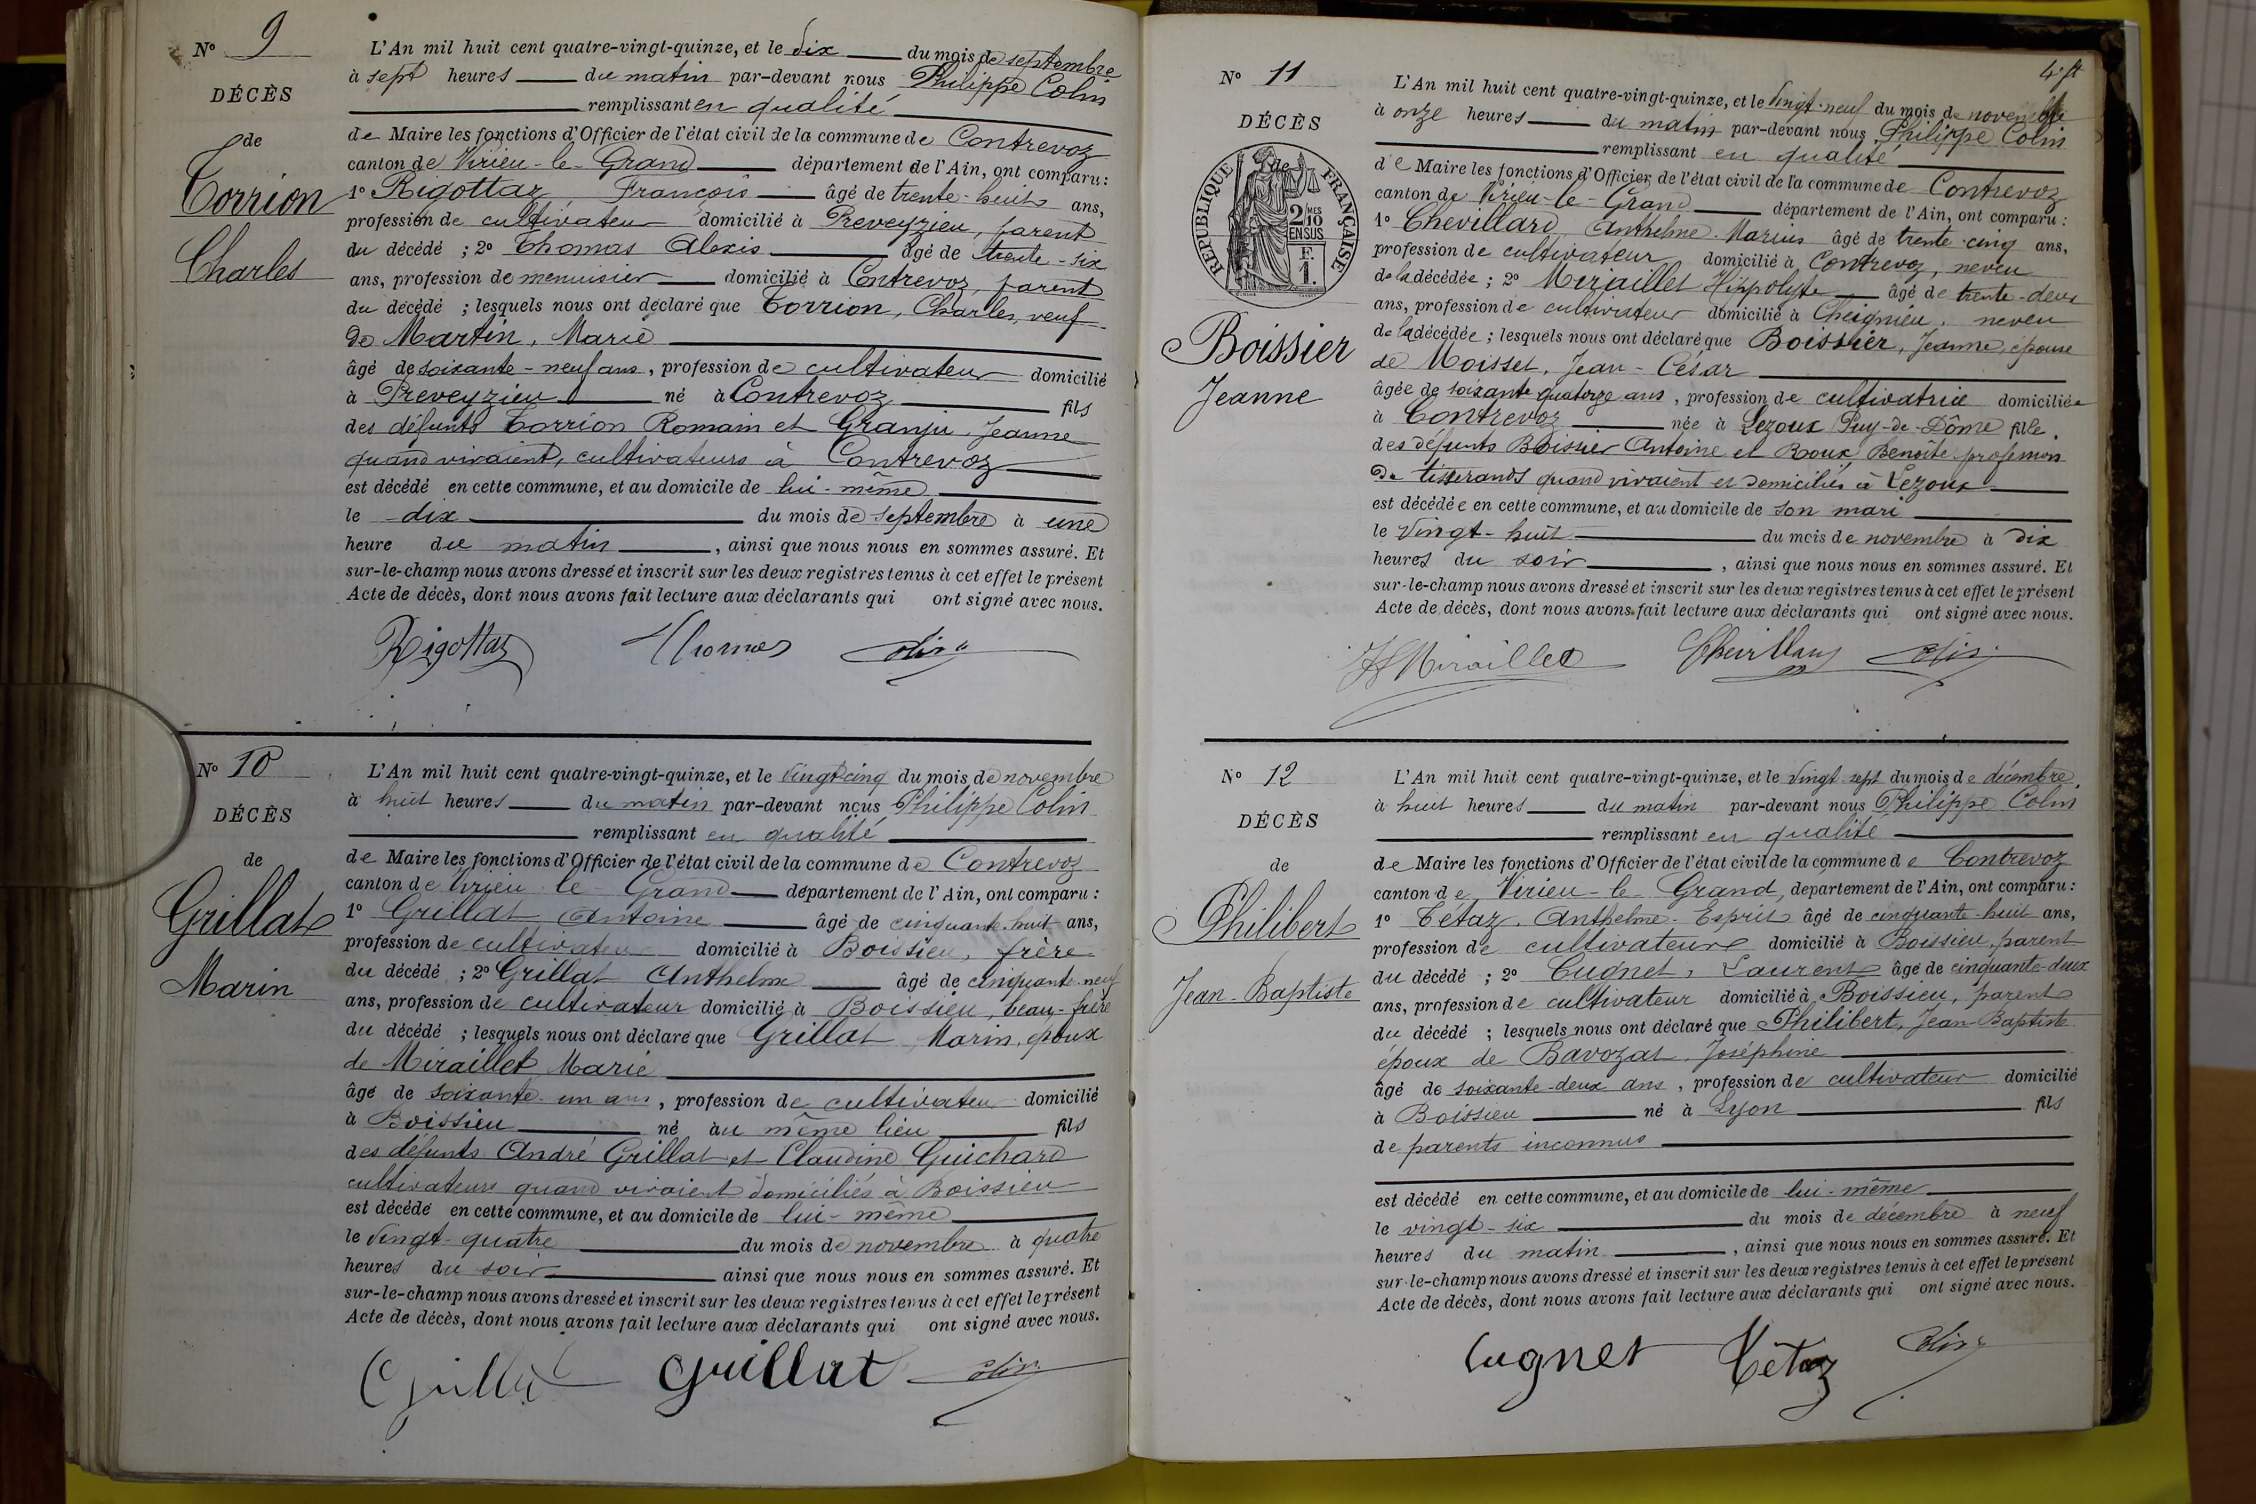 N° 9
DÉCÈS
de
Torrion
Charles
L'An mil huit cent quatre-vingt-quinze, et le dix du mois de septembre
à sept heures du matin par-devant nous Philippe Colin
remplissant en qualité
de Maire les fonctions d'Officier de l'état civil de la commune de Contrevoz
canton de Virieu-le-Grand département de l'Ain, ont comparu :
1° Rigottaz François âgé de trente-huit ans,
profession de cultivateur domicilié à Preveyzieu, parent
du décédé ; 2° Thomas Alexis âgé de trente-six
ans, profession de menuisier domicilié à Contrevoz, parent
du décédé ; lesquels nous ont déclaré que Torrion, Charles, veuf
de Martin, Marie
âgé de soixante-neuf ans, profession de cultivateur domicilié
à Preveyzieu né à Contrevoz fils
des défunts Torrion Romain et Granju Jeanne
quand vivaient, cultivateurs à Contrevoz
est décédé en cette commune, et au domicile de lui-même
le dix du mois de septembre à une
heure du matin, ainsi que nous nous en sommes assuré. Et
sur-le-champ nous avons dressé et inscrit sur les deux registres tenus à cet effet le présent
Acte de décès, dont nous avons fait lecture aux déclarants qui ont signé avec nous.
Rigottaz Thomas Colin
N° 10
DÉCÈS
de
Grillat
Marin
L'An mil huit cent quatre-vingt-quinze, et le vingt-cinq du mois de novembre
à huit heures du matin par-devant nous Philippe Colin
remplissant en qualité
de Maire les fonctions d'Officier de l'état civil de la commune de Contrevoz
canton de Virieu-le-Grand département de l'Ain, ont comparu :
1° Grillat Antoine âgé de cinquante-huit ans,
profession de cultivateur domicilié à Boissieu, frère
du décédé ; 2° Grillat Anthelme âgé de cinquante-neuf
ans, profession de cultivateur domicilié à Boissieu, beau-frère
du décédé ; lesquels nous ont déclaré que Grillat Marin, époux
de Miraillet Marie
âgé de soixante-un ans, profession de cultivateur domicilié
à Boissieu né au même lieu fils
des défunts André Grillat et Claudine Guichard
cultivateurs quand vivaient domiciliés à Boissieu
est décédé en cette commune, et au domicile de lui-même
le vingt-quatre du mois de novembre à quatre
heures du soir ainsi que nous nous en sommes assuré. Et
sur-le-champ nous avons dressé et inscrit sur les deux registres tenus à cet effet le présent
Acte de décès, dont nous avons fait lecture aux déclarants qui ont signé avec nous.
Grillat Grillat Colin
N° 11
DÉCÈS
de
RÉPUBLIQUE FRANÇAISE
2/10 MES
EN SUS
F.
1.
Boissier
Jeanne
L'An mil huit cent quatre-vingt-quinze, et le vingt-neuf du mois de novembre
à onze heures du matin par-devant nous Philippe Colin
remplissant en qualité
de Maire les fonctions d'Officier de l'état civil de la commune de Contrevoz
canton de Virieu-le-Grand département de l'Ain, ont comparu :
1° Chevillard, Anthelme-Marius âgé de trente-cinq ans,
profession de cultivateur domicilié à Contrevoz, neveu
de la décédée ; 2° Miraillet Hippolyte âgé de trente-deux
ans, profession de cultivateur domicilié à Cheignieu, neveu
de la décédée ; lesquels nous ont déclaré que Boissier, Jeanne, épouse
de Moisset, Jean-César
âgée de soixante quatorze ans, profession de cultivatrice domiciliée
à Contrevoz née à Lezoux Puy-de-Dôme fille
des défunts Boissier Antoine et Roux Benoîte profession
de tisserands quand vivaient et domiciliés à Lezoux
est décédée en cette commune, et au domicile de son mari
le vingt-huit du mois de novembre à dix
heures du soir, ainsi que nous nous en sommes assuré. Et
sur-le-champ nous avons dressé et inscrit sur les deux registres tenus à cet effet le présent
Acte de décès, dont nous avons fait lecture aux déclarants qui ont signé avec nous.
H Miraillet Chevillard Colin
N° 12
DÉCÈS
de
Philibert
Jean-Baptiste
L'An mil huit cent quatre-vingt-quinze, et le vingt sept du mois de décembre
à huit heures du matin par-devant nous Philippe Colin
remplissant en qualité
de Maire les fonctions d'Officier de l'état civil de la commune de Contrevoz
canton de Virieu-le-Grand, département de l'Ain, ont comparu :
1° Tétaz, Anthelme-Esprit âgé de cinquante-huit ans,
profession de cultivateur domicilié à Boissieu, parent
du décédé ; 2° Cugnet, Laurent âgé de cinquante-deux
ans, profession de cultivateur domicilié à Boissieu, parent
du décédé ; lesquels nous ont déclaré que Philibert, Jean-Baptiste
époux de Bavozat, Joséphine
âgé de soixante-deux ans, profession de cultivateur domicilié
à Boissieu né à Lyon fils
de parents inconnus
est décédé en cette commune, et au domicile de lui-même
le vingt-six du mois de décembre à neuf
heures du matin, ainsi que nous nous en sommes assuré. Et
sur-le-champ nous avons dressé et inscrit sur les deux registres tenus à cet effet le présent
Acte de décès, dont nous avons fait lecture aux déclarants qui ont signé avec nous.
Cugnet Tétaz Colin